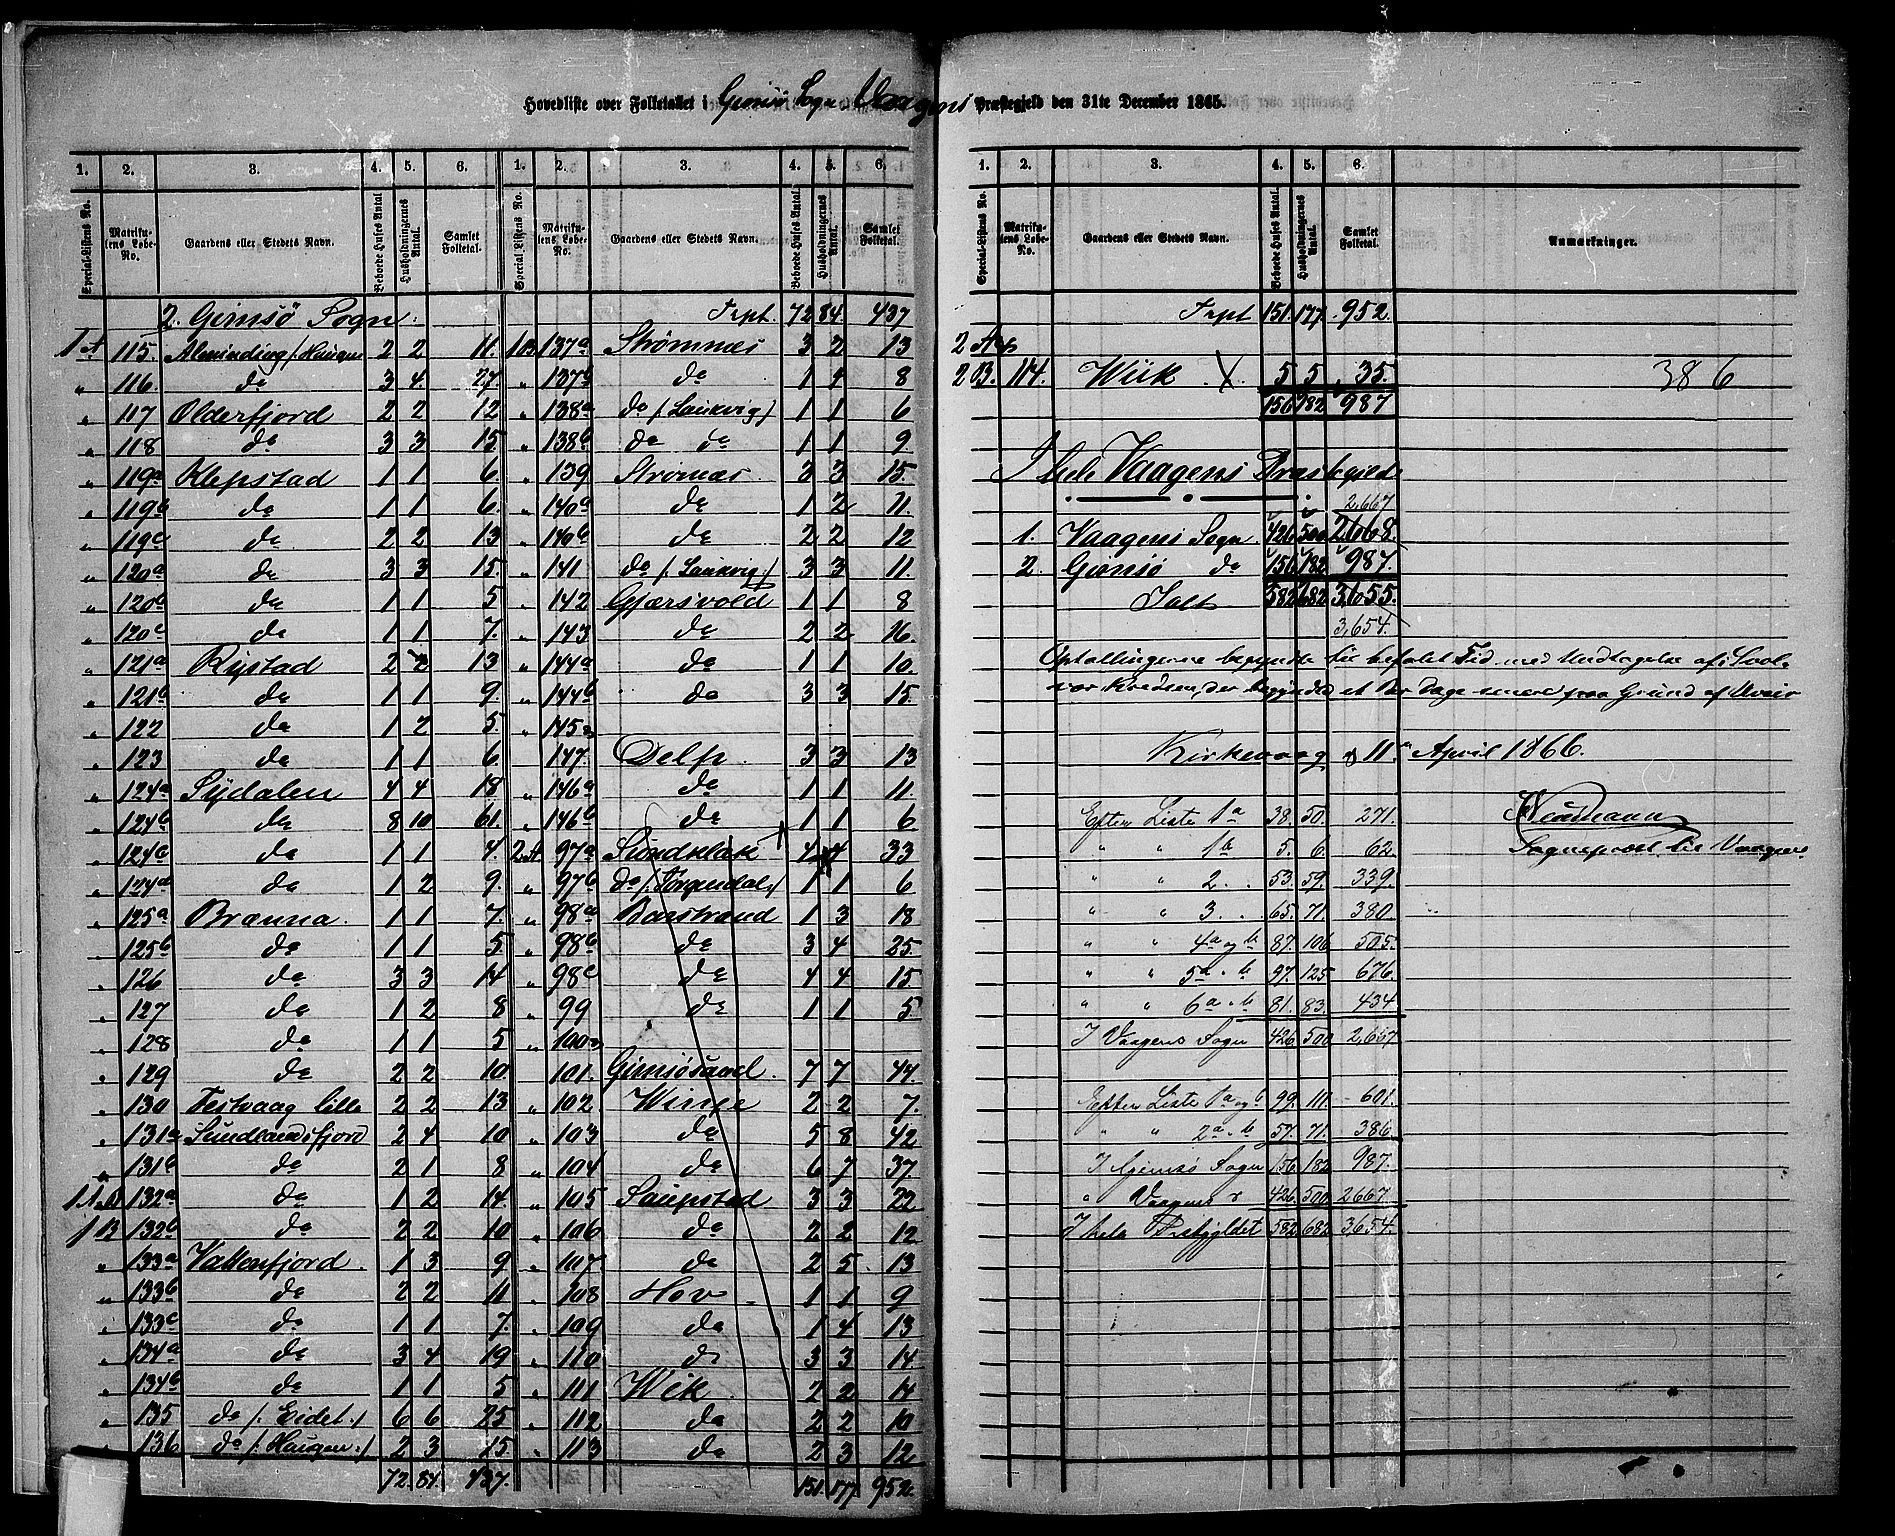 Hovedliste over Folketallet i Gimsö Sogn Vaagens Præstegjeld den 31te December 1865.
1. 2. 3. 4. 5. 6. 1. 2. 3. 4. 5. 6.
Special-Listens No. Matrikulens Løbe-No. Gaardens eller Stedets Navn. Beboede Huses Antal Husholdningernes Antal. Samlet Folketal. Special Listens No. Matrikulens Løbe-No. Gaardens eller Stedets Navn. Beboede Huses Antal. Husholdningernes Antal. Samlet Folketal.
2. Gimsö Sogn. Trpt. 72 84. 437
1 A 115. Alminding /: Haugen 2 2 11. 1 B. 137a Strømnæs 3 2 13
" 116. do 3 4. 27. " 137b do 1 1 8
" 117 Olderfjord 2 2 12 " 138a do /: Laukvig :/ 1 1 6
" 118 do 3 3 15. " 138b do do 1 1 9.
" 119a Klepstad 1 1 6. " 139 Strømnæs 3 3 15.
" 119b do 1 1 6. " 140a do 1 2 11.
" 119c do 2 2 13 " 140b do 2 2 12
" 120a do 3 3 15. " 141 do /: Laukvig :/ 3 3 11.
" 120b do 1 1 5 " 142 Gjærsvold 1 1 8
" 120c do 1 1 7. " 143 do 2 2 16.
" 121a Rystad 2 2 13 " 144a do 1 1 10.
" 121b do 1 1 9. " 144b do 3 3 15.
" 122 do 1 2 5. " 145
" 123 do 1 1 6. " 147. Delp 3 3 13
" 124a Sydalen 4 4 18 " 146a do 1 1 11.
" 124b do 8 10 61. " 146b do 1 1 6
" 124c do 1 1 4. 2 A 97a Sundklak 4 4 33
" 124d do 1 2 9. " 97b do /: Torgendal :/ 1 1 6
" 125a Brænna. 1 1 7. " 98a Barstrand 1 3 18
" 125b do 1 1 5. " 98b do 3 4 25.
" 126 do 3 3 14 " 98c do 4 4 15
" 127 do 1 2 8 " 99 do 1 1 5
" 128 do 1 1 5 " 100
" 129 do 2 2 10 " 101. Gimsösand. 7 7 44.
" 130 Festvaag lille 2 2 13 " 102 Winje 2 2 7.
" 131a Sundlandsfjord 2 4 10 " 103 do 5 8 42
" 131b do 2 1 8 " 104 do 6 7 37.
132a do 1 2 14. " 105 Saupstad 3 3 22
1 B 132b do 2 2 10 " 106 do 2 2 12
" 133a Vattenfjord. 1 3 9 " 107 do 2 5. 13
" 133b do 2 2 11 " 108 Hov 1 1 9
" 133c do 1 1 7. " 109 do 1 4 13
" 134a do 3 4 19 " 110 do 3 3 14
" 134b do 1 1 5 " 111 Wik 2 2 14
" 135 do /: Eidet :/ 6 6 25 " 112 do 2 2 10
" 136 do /: Haugen :/ 2 3 15. " 113 do 2 3 12
72. 84. 437. 151. 177 952.
1. 2. 3. 4. 5. 6.
Special-Listens No. Matrikulens Løbe-No. Gaardens eller Stedets Navn. Beboede Huses Antal. Husholdningernes Antal. Samlet Folketal. Anmærkninger.
Trpt 151. 177. 952.
2 A
2 B. 114. Wiik X. 5 5 35. 386
156 182 987
I hele Vaagens Præstegjeld
2,667
1. Vaagens Sogn 426 500 2,668.
2. Gimsö do 156 182 987.
Ialt 582 682 3,655.
3,654.
Optællingerne begyndte til befalet Tid med Undtagelse af i Svolvær Kredsen, der begyndtes et Par Dage senere paa Grund af Uveir
Kirkevaag d 11te April 1866.
Efter Liste 1a 38. 50. 271.
" " 1b 5. 6. 62. Sognepræst til Vaagen
" " 2. . 53. 59. 339.
" " 3. . 65. 71. 380.
" " 4a og b 87. 106 505.
" " 5a " b 97. 125 676.
" " 6a " b 81. 83. 434
I Vaagens Sogn 426. 500 2,667
Efter Liste 1a og b 99. 111. 601.
" " 2a " b 57. 71. 386
I Gimsö Sogn 156. 182 987.
" Vaagens " 426. 500 2667.
I hele Præstegjeldet 582. 682 3,654.